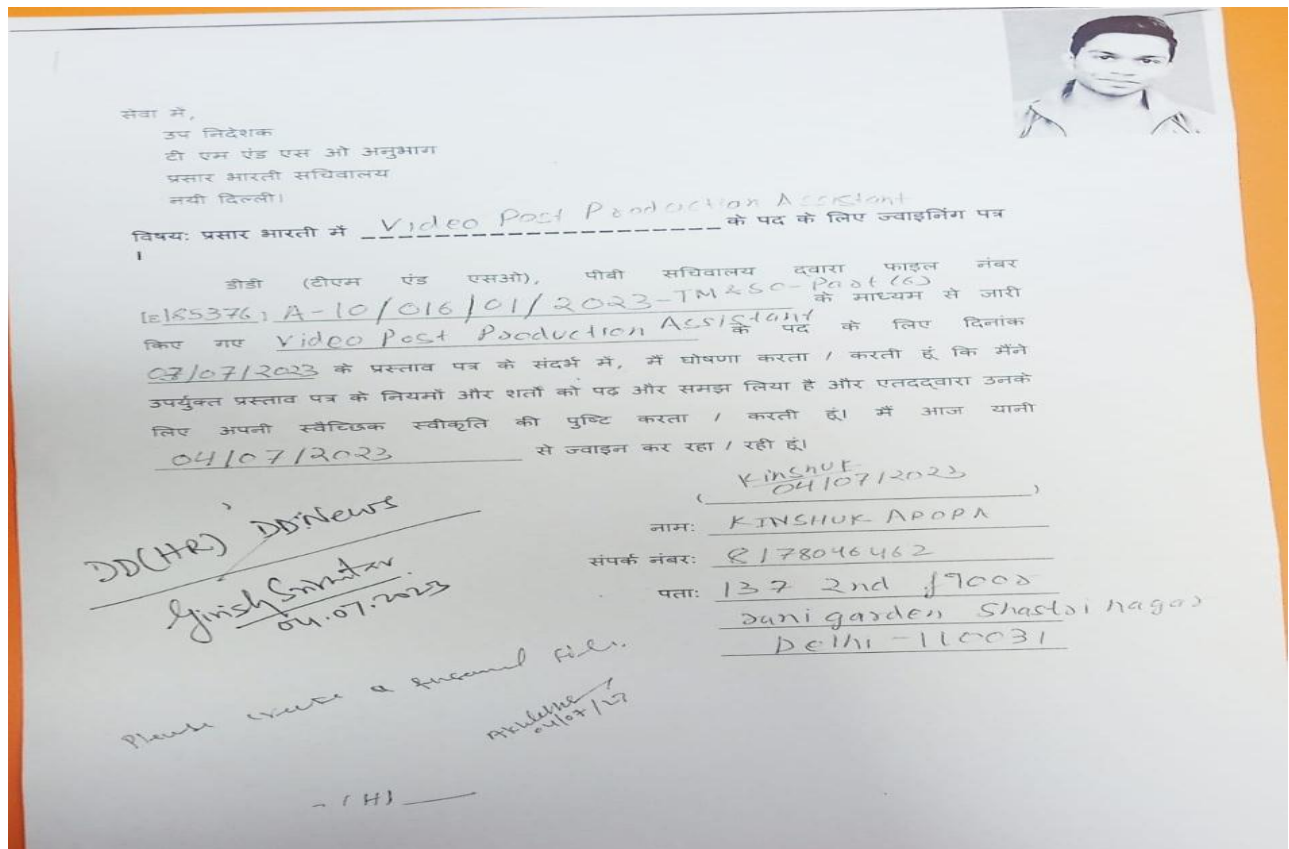 सेवा में,
उप निदेशक
टी एम एंड एस ओ अनुभाग
प्रसार भारती सचिवालय
नयी दिल्ली।
विषय: प्रसार भारती में Video Post Production Assistant के पद के लिए ज्वाइनिंग पत्र
।
डीडी (टीएम एंड एसओ), पीबी सचिवालय द्वारा फाइल नंबर
[E185376] A-10/016/01/2023-TM&SO-Part(6) के माध्यम से जारी
किए गए Video Post Production Assistant के पद के लिए दिनांक
07/07/2023 के प्रस्ताव पत्र के संदर्भ में, मैं घोषणा करता / करती हूं कि मैंने
उपर्युक्त प्रस्ताव पत्र के नियमों और शर्तों को पढ और समझ लिया है और एतदद्वारा उनके
लिए अपनी स्वैच्छिक स्वीकृति की पुष्टि करता / करती हूं। मैं आज यानी
04/07/2023 से ज्वाइन कर रहा / रही हूं।
Kinshuk
( 04/07/2023 )
नाम: KINSHUK ARORA
संपर्क नंबर: 8178046462
पता: 137 2nd floor
rani garden Shastri nagar
Delhi-110031
DD(HR) DD News
04.07.2023
Please create a file.
04/07/23